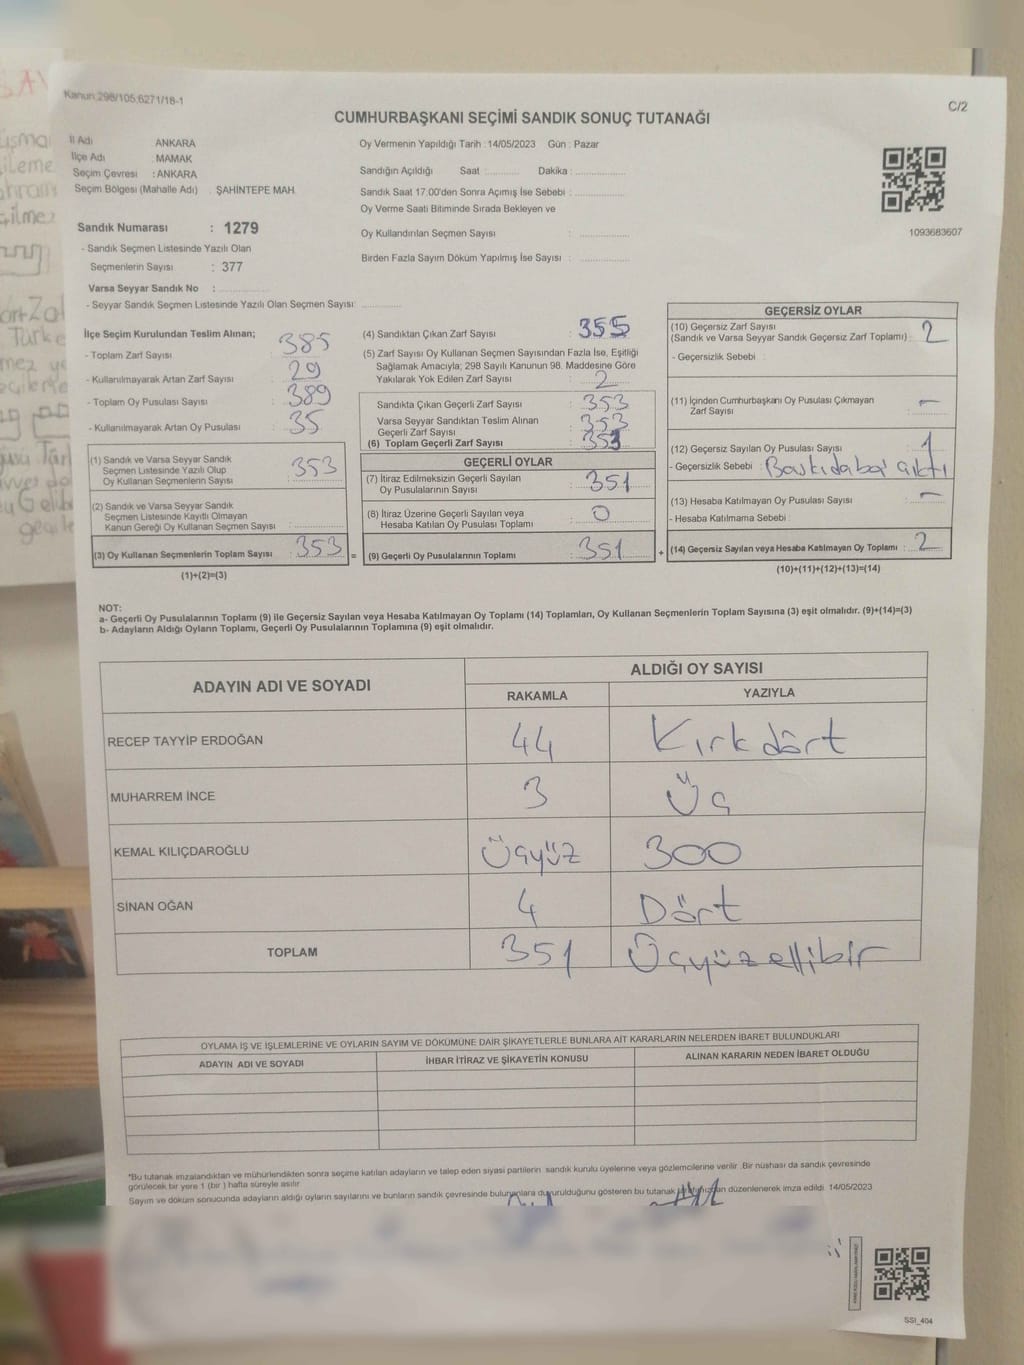 Kanun:298/105,6271/18-1
C/2
CUMHURBAŞKANI SEÇİMİ SANDIK SONUÇ TUTANAĞI
İl Adı ANKARA
İlçe Adı : MAMAK
Seçim Çevresi : ANKARA
Seçim Bölgesi (Mahalle Adı) . ŞAHİNTEPE MAH.
Oy Vermenin Yapıldığı Tarih : 14/05/2023 Gün : Pazar
Sandığın Açıldığı Saat : Dakika :
Sandık Saat 17:00'den Sonra Açımış İse Sebebi :
Oy Verme Saati Bitiminde Sırada Bekleyen ve
Oy Kullandırılan Seçmen Sayısı :
Birden Fazla Sayım Döküm Yapılmış İse Sayısı :
1093683607
Sandık Numarası : 1279
- Sandık Seçmen Listesinde Yazılı Olan
Seçmenlerin Sayısı : 377
Varsa Seyyar Sandık No :
- Seyyar Sandık Seçmen Listesinde Yazılı Olan Seçmen Sayısı:
İlçe Seçim Kurulundan Teslim Alınan;
- Toplam Zarf Sayısı : 385
- Kullanılmayarak Artan Zarf Sayısı : 29
- Toplam Oy Pusulası Sayısı : 389
- Kullanılmayarak Artan Oy Pusulası : 35
(1) Sandık ve Varsa Seyyar Sandık
Seçmen Listesinde Yazılı Olup
Oy Kullanan Seçmenlerin Sayısı : 353
(2) Sandık ve Varsa Seyyar Sandık
Seçmen Listesinde Kayıtlı Olmayan
Kanun Gereği Oy Kullanan Seçmen Sayısı :
(3) Oy Kullanan Seçmenlerin Toplam Sayısı : 353
(1)+(2)=(3)
(4) Sandıktan Çıkan Zarf Sayısı : 355
(5) Zarf Sayısı Oy Kullanan Seçmen Sayısından Fazla İse, Eşitliği
Sağlamak Amacıyla; 298 Sayılı Kanunun 98. Maddesine Göre
Yakılarak Yok Edilen Zarf Sayısı : 2
Sandıkta Çıkan Geçerli Zarf Sayısı : 353
Varsa Seyyar Sandıktan Teslim Alınan
Geçerli Zarf Sayısı : 353
(6) Toplam Geçerli Zarf Sayısı : 353
GEÇERLİ OYLAR
(7) İtiraz Edilmeksizin Geçerli Sayılan
Oy Pusulalarının Sayısı : 351
(8) İtiraz Üzerine Geçerli Sayılan veya
Hesaba Katılan Oy Pusulası Toplamı : 0
= (9) Geçerli Oy Pusulalarının Toplamı : 351
GEÇERSİZ OYLAR
(10) Geçersiz Zarf Sayısı
(Sandık ve Varsa Seyyar Sandık Geçersiz Zarf Toplamı) : 2
- Geçersizlik Sebebi :
(11) İçinden Cumhurbaşkanı Oy Pusulası Çıkmayan
Zarf Sayısı : -
(12) Geçersiz Sayılan Oy Pusulası Sayısı : 1
- Geçersizlik Sebebi : çıktı
(13) Hesaba Katılmayan Oy Pusulası Sayısı : -
- Hesaba Katılmama Sebebi :
+ (14) Geçersiz Sayılan veya Hesaba Katılmayan Oy Toplamı : 2
(10)+(11)+(12)+(13)=(14)
NOT:
a- Geçerli Oy Pusulalarının Toplamı (9) ile Geçersiz Sayılan veya Hesaba Katılmayan Oy Toplamı (14) Toplamları, Oy Kullanan Seçmenlerin Toplam Sayısına (3) eşit olmalıdır. (9)+(14)=(3)
b- Adayların Aldığı Oyların Toplamı, Geçerli Oy Pusulalarının Toplamına (9) eşit olmalıdır.
ADAYIN ADI VE SOYADI ALDIĞI OY SAYISI
RAKAMLA YAZIYLA
RECEP TAYYİP ERDOĞAN 44 Kırkdört
MUHARREM İNCE 3 Üç
KEMAL KILIÇDAROĞLU Üçyüz 300
SİNAN OĞAN 4 Dört
TOPLAM 351 Üçyüzellibir
OYLAMA İŞ VE İŞLEMLERİNE VE OYLARIN SAYIM VE DÖKÜMÜNE DAİR ŞİKAYETLERLE BUNLARA AİT KARARLARIN NELERDEN İBARET BULUNDUKLARI
ADAYIN ADI VE SOYADI İHBAR İTİRAZ VE ŞİKAYETİN KONUSU ALINAN KARARIN NEDEN İBARET OLDUĞU
*Bu tutanak imzalandıktan ve mühürlendikten sonra seçime katılan adayların ve talep eden siyasi partilerin sandık kurulu üyelerine veya gözlemcilerine verilir. Bir nüshası da sandık çevresinde
görülecek bir yere 1 (bir ) hafta süreyle asılır.
Sayım ve döküm sonucunda adayların aldığı oyların sayılarını ve bunların sandık çevresinde bulunanlara duyurulduğunu gösteren bu tutanak düzenlenerek imza edildi. 14/05/2023
SSI_404